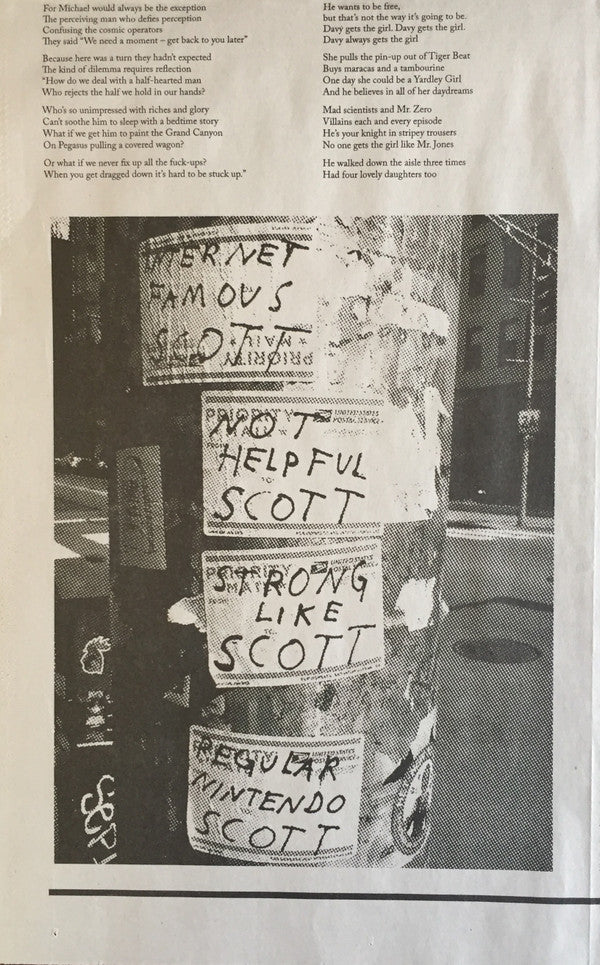 For Michael would always be the exception
The perceiving man who defies perception
Confusing the cosmic operators
They said "We need a moment – get back to you later"
Because here was a turn they hadn't expected
The kind of dilemma requires reflection
"How do we deal with a half-hearted man
Who rejects the half we hold in our hands?
Who's so unimpressed with riches and glory
Can't soothe him to sleep with a bedtime story
What if we get him to paint the Grand Canyon
On Pegasus pulling a covered wagon?
Or what if we never fix up all the fuck-ups?
When you get dragged down it's hard to be stuck up."
He wants to be free,
but that's not the way it's going to be.
Davy gets the girl. Davy gets the girl.
Davy always gets the girl
She pulls the pin-up out of Tiger Beat
Buys maracas and a tambourine
One day she could be a Yardley Girl
And he believes in all of her daydreams
Mad scientists and Mr. Zero
Villains each and every episode
He's your knight in stripey trousers
No one gets the girl like Mr. Jones
He walked down the aisle three times
Had four lovely daughters too
INTERNET
FAMOUS
SCOTT
PRIORITY
★ MAIL ★
PRIORITY
MAIL
UNITED STATES
POSTAL SERVICE
NOT
HELPFUL
SCOTT
PRIORITY
MAIL
UNITED STATES
STRONG
LIKE
SCOTT
UNITED STATES
POSTAL SERVICE
REGULAR
NINTENDO
SCOTT